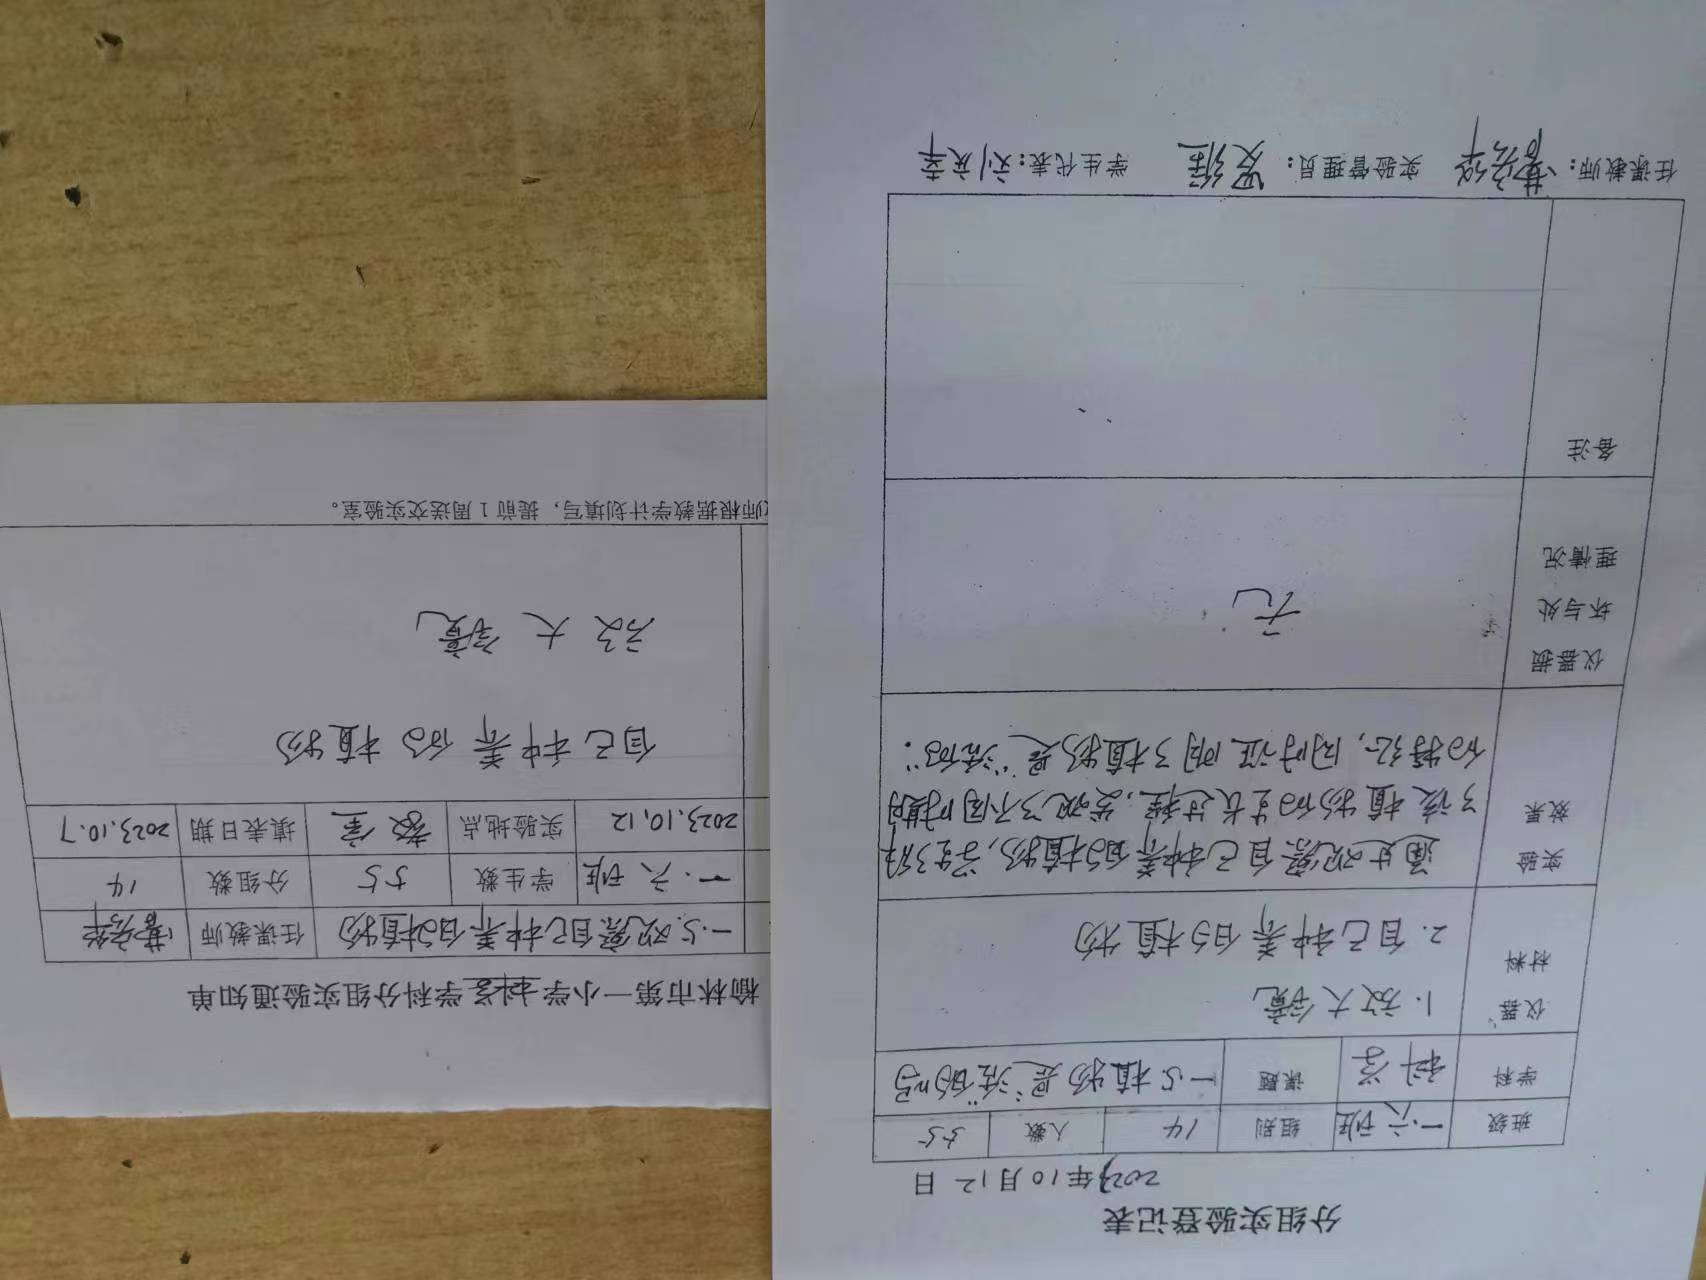 分组实验登记表
2023年10月12日
班级 一.六班 组别 14 人数 55
学科 科学 课题 一.5植物是"活"的吗
仪器材料 1.放大镜
2.自己种养的植物
实验效果 通过观察自己种养的植物,学生了解
了该植物的生长过程,发现了不同时期
的特征,同时证明了植物是"活的".
仪器损坏与处理情况 无
备注
任课教师: 实验管理员: 学生代表:刘庆幸
榆林市第一小学科学学科分组实验通知单
一.5.观察自己种养的植物 任课教师
一.六班 学生数 55 分组数 14
2023.10.12 实验地点 教室 填表日期 2023.10.7
自己种养的植物
放大镜
师根据教学计划填写,提前1周送交实验室。